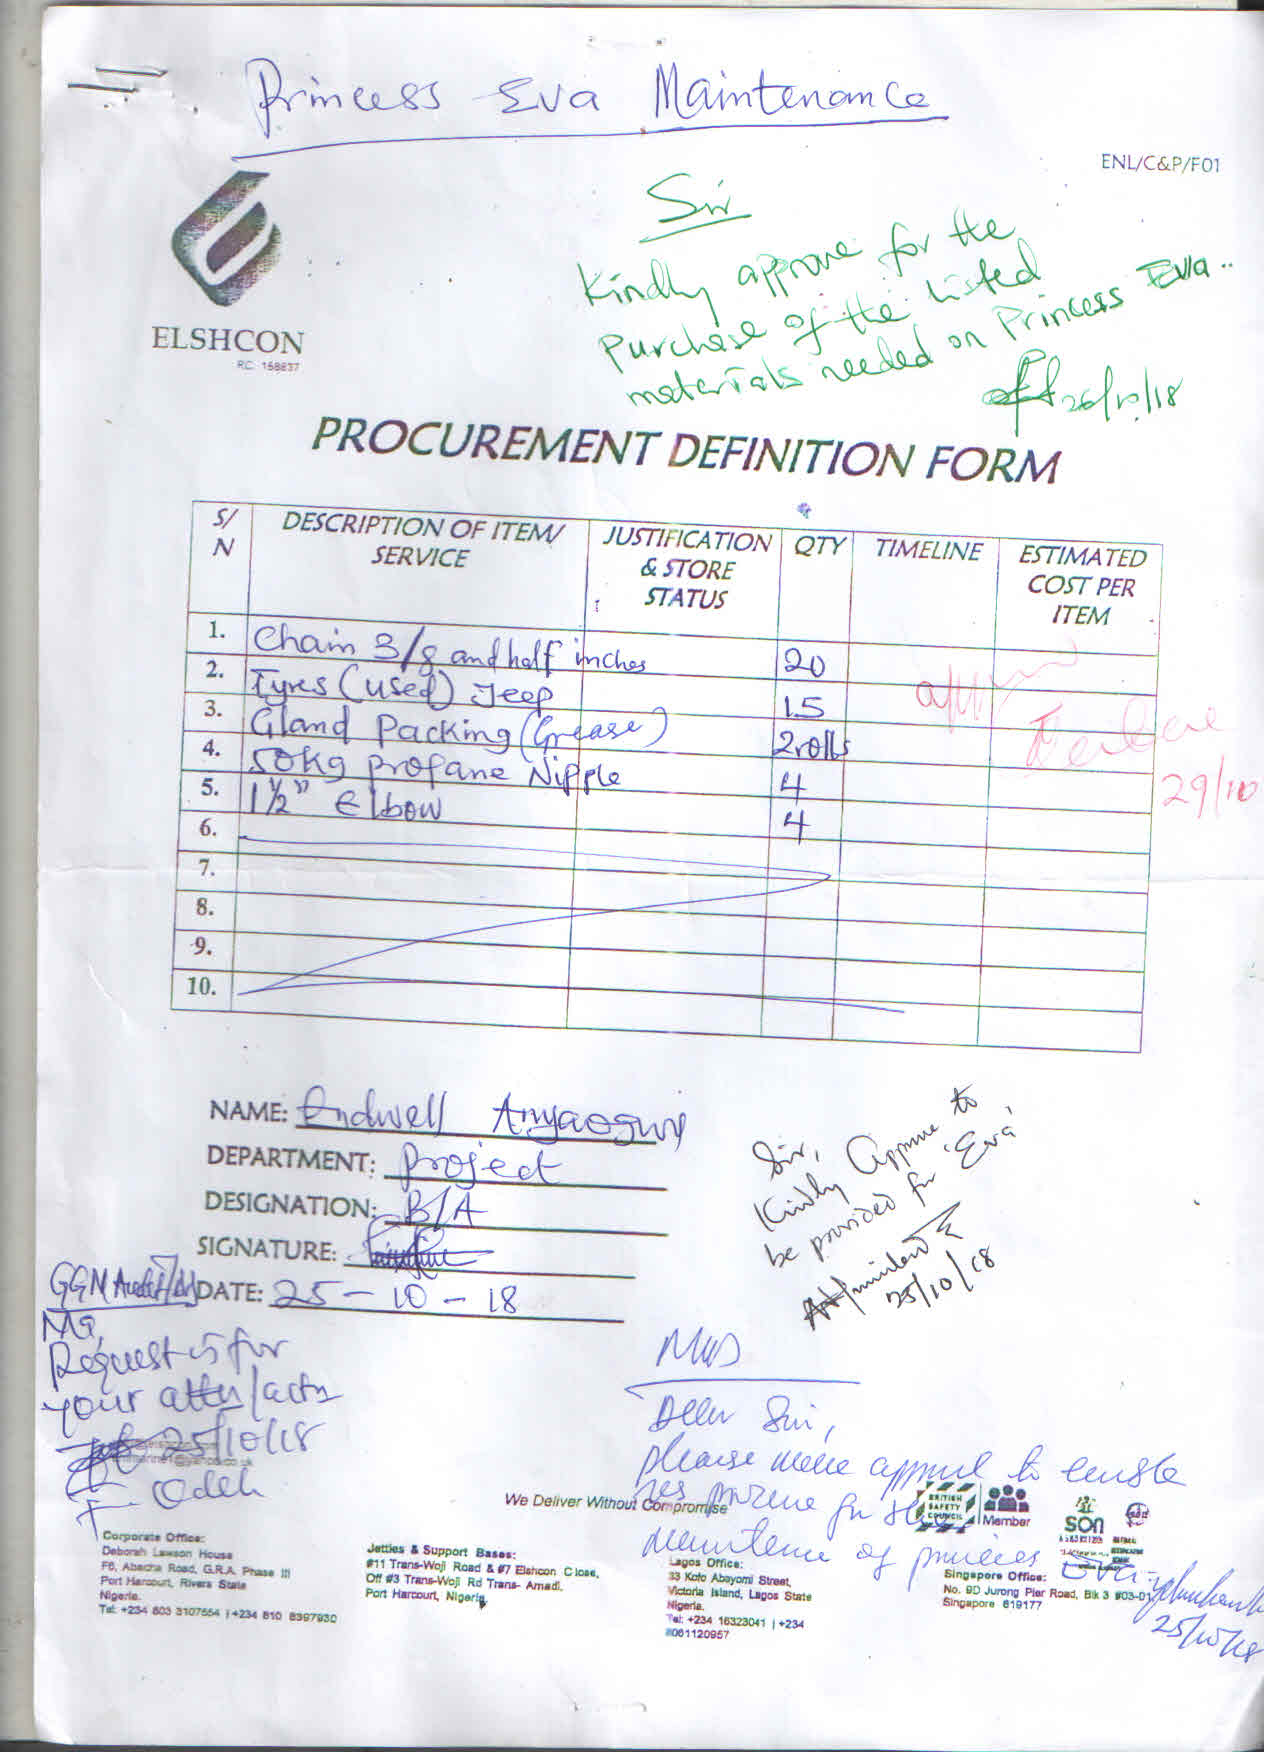 Princess Eva Maintenance
ENL/C&P/F01
Sir
Kindly approve for the
purchase of the listed
materials needed on Princess Eva..
26/10/18
ELSHCON
RC: 158837
PROCUREMENT DEFINITION FORM
S/N DESCRIPTION OF ITEM/SERVICE JUSTIFICATION & STORE STATUS QTY TIMELINE ESTIMATED COST PER ITEM
1. Chain 3/8 and half inches 20
2. Tyres (used) Jeep 15
3. Gland Packing (Grease) 2rolls
4. 50kg propane Nipple 4
5. 1½" Elbow 4
6.
7.
8.
9.
10.
29/10
NAME: Endwell
DEPARTMENT: Project
DESIGNATION: B/A
SIGNATURE:
DATE: 25-10-18
Sir,
Kindly Approve to
be provided for 'Eva'
25/10/18
GGM
Ma,
Request is for
your attn/actn
25/10/18
F Odeh
MD
Dear Sir,
please
of princess Eva
25/10/18
We Deliver Without Compromise
BRITISH SAFETY COUNCIL Member
SON
Corporate Office:
Deborah Lawson House
F6, Abacha Road, G.R.A. Phase III
Port Harcourt, Rivers State
Nigeria.
Tel: +234 803 3107554 | +234 810 8397930
Jetties & Support Bases:
#11 Trans-Woji Road & #7 Elshcon Close,
Off #3 Trans-Woji Rd Trans- Amadi,
Port Harcourt, Nigeria,
Lagos Office:
33 Kofo Abayomi Street,
Victoria Island, Lagos State
Nigeria.
Tel: +234 16323041 | +234
8061120957
Singapore Office:
No. 9D Jurong Pier Road, Blk 3 #03-01
Singapore 619177